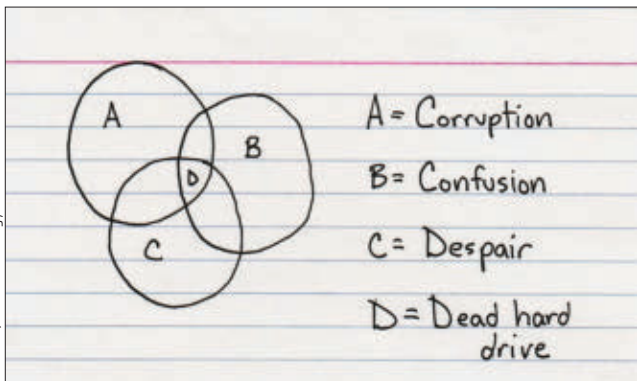 A
B
C
D
A = Corruption
B = Confusion
C = Despair
D = Dead hard
drive